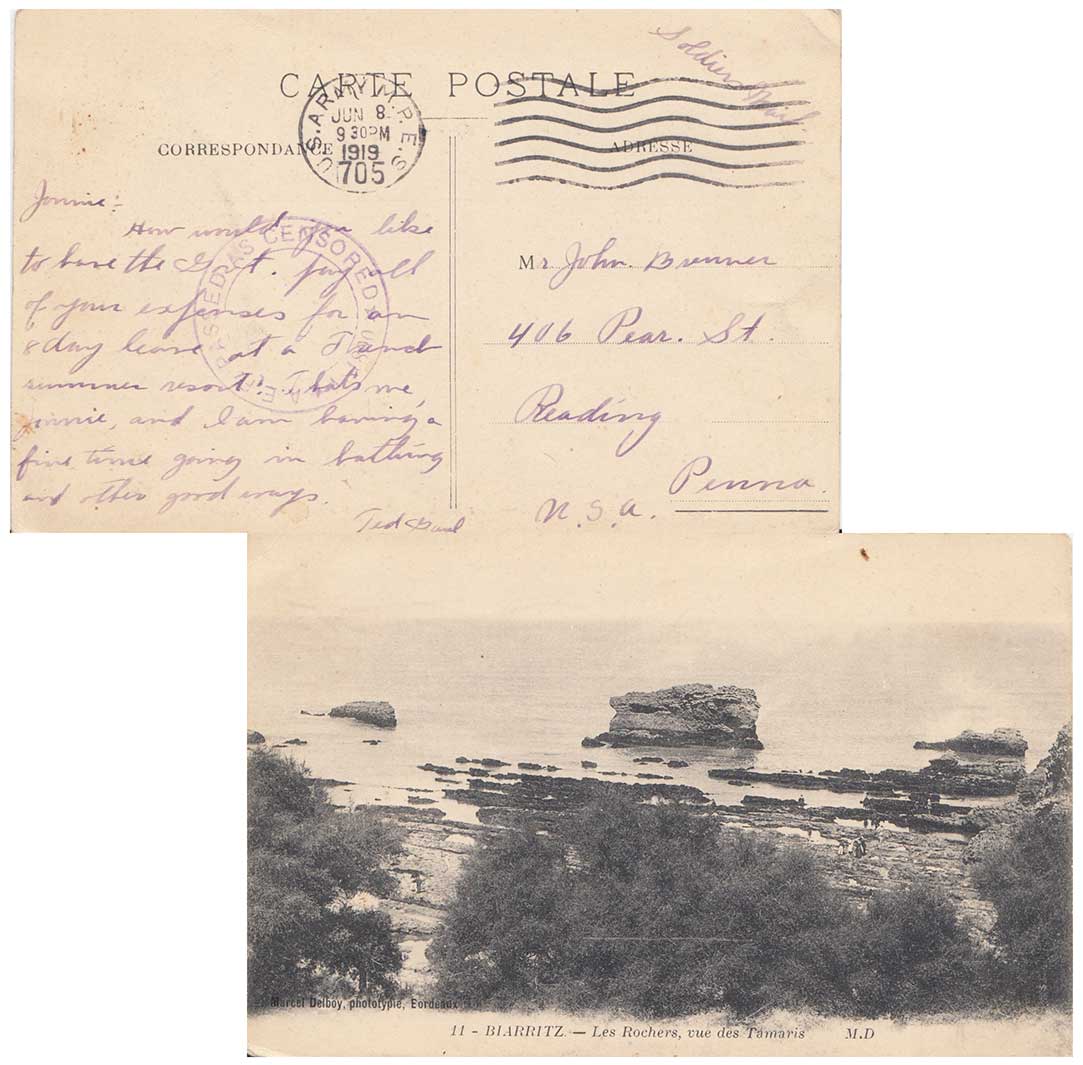 Soldier's Mail.
CARTE POSTALE
U.S. ARMY M.P.E.S.
JUN 8
9 30 PM
1919
705
CORRESPONDANCE
ADRESSE
Jonnie:-
How would you like
to have the Gov't. pay all
of your expenses for an
8 day leave at a French
summer resort? That's me,
Jonnie, and I am having a
fine time going in bathing
and other good ways.
Ted Gaul
PASSED AS CENSORED
A.E.F.
Mr John. Brenner
406 Pear. St.
Reading
Penna.
U.S.A.
Marcel Delboy, phototypie, Bordeaux
11 - BIARRITZ. — Les Rochers, vue des Tamaris M.D